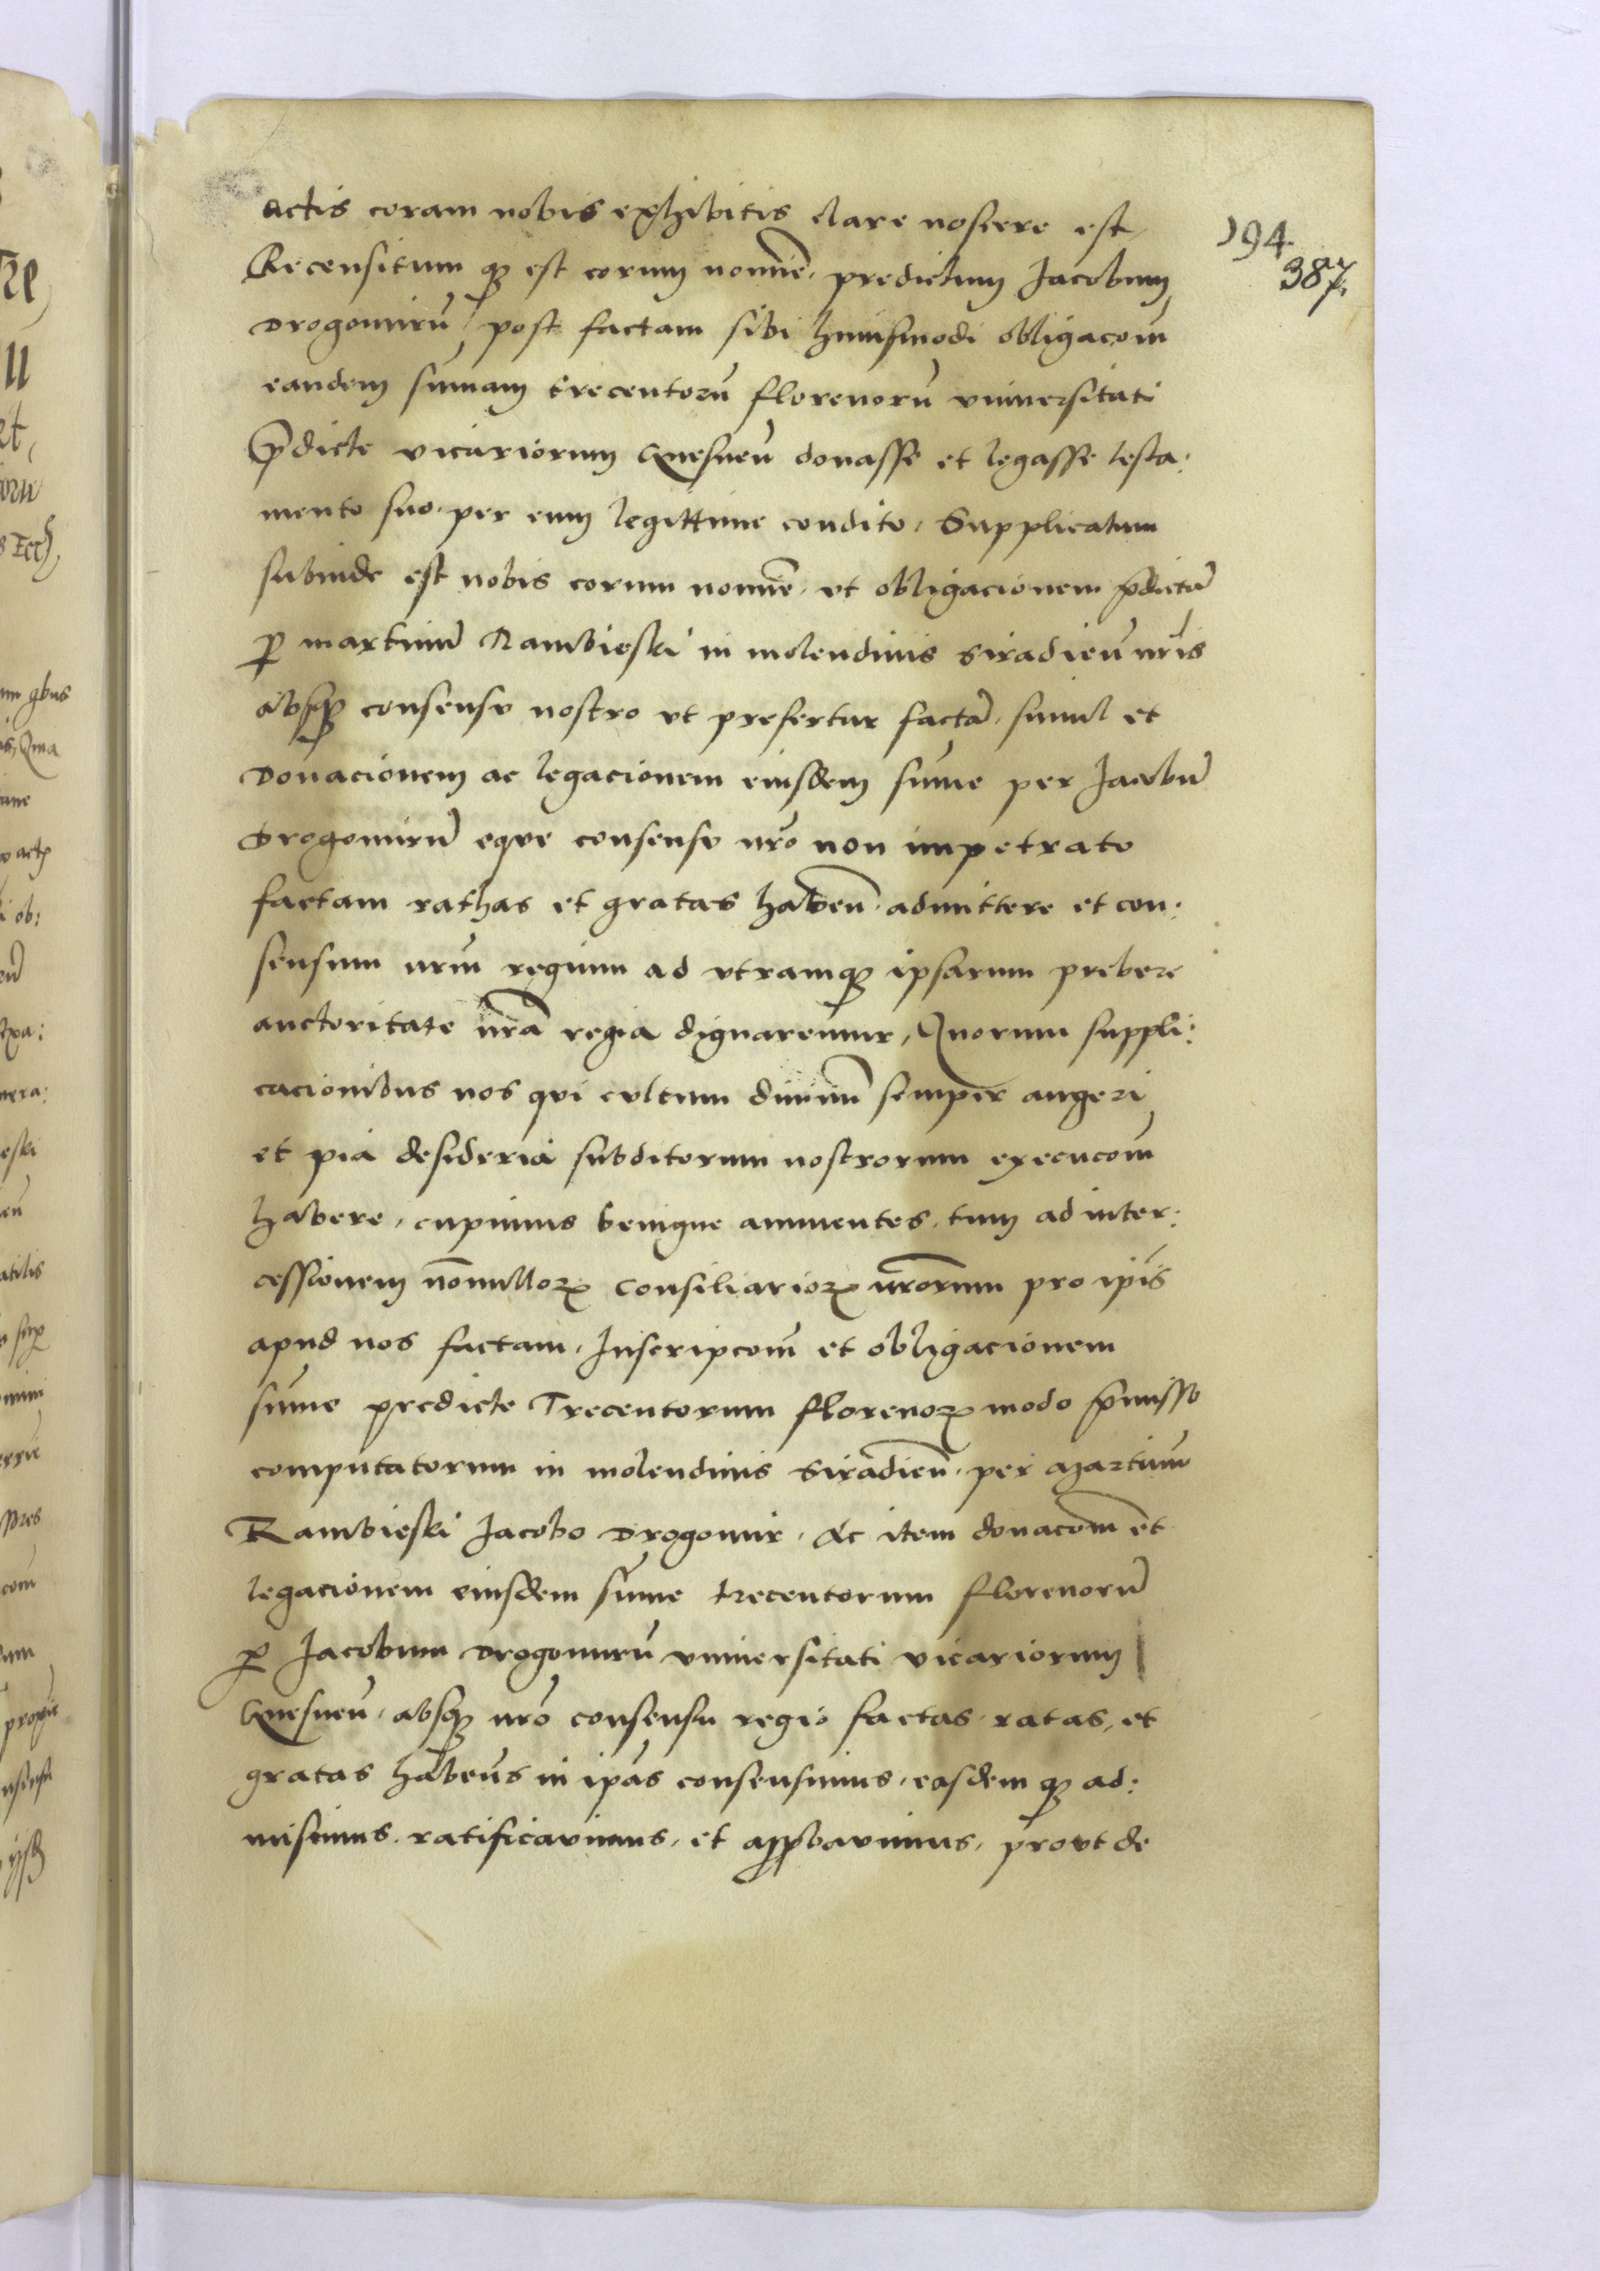 actis coram nobis exhibitis clare noscere est,
Recensitum q3 est eorum nomīe, predictum Jacobum
Drogomirū post factam sibi huiusmodi obligacoīm
eandem sūmam trecentorū florenorū vniuersitati
p̄dicte vicariorum Gnesneñ donasse et legasse testa:
mento suo per eum legittime condito, Supplicatum
subinde est nobis eorum nomīe, vt obligacionem p̄dictā
p martinū Rambieski in molendinis Siradieñ nr̄is
absq3 consensv nostro vt prefertur factā, simul et
Donacionem ac legacionem eiusdem sūme per Jacobū
Drogomirū eqve consensv nr̄o non impetrato
factam rathas et gratas habeñ admittere et con:
sensum nr̄m regium ad vtramq3 ipsarum prebere
auctoritate nr̄a regia dignaremur, Quorum suppli:
cacionibus nos qvi cvltum diuinū semper augeri
et pia desideria subditorum nostrorum execucoīm
habere, cupimus benigne annuentes, tum ad inter:
cessionem nōnulloꝝ Consiliarioꝝ nr̄orum pro ip̄is
apud nos factam, Inscripcoīm et obligacionem
sūme predicte Trecentorum florenoꝝ modo p̄misso
computatorum in molendinis Siradieñ, per Martinū
Rambieski Jacobo Drogomir, Ac item donacoīm et
legacionem eiusdem sūme trecentorum florenorū
p Jacobum Drogomirū vniuersitati vicariorum
Gnesneñ, absq3 nr̄o consensu regio factas ratas, et
gratas habeñs in ip̄as consensimus, easdem q3 ad:
misimus, ratificavimus, et approbavimus, provt de
194
387